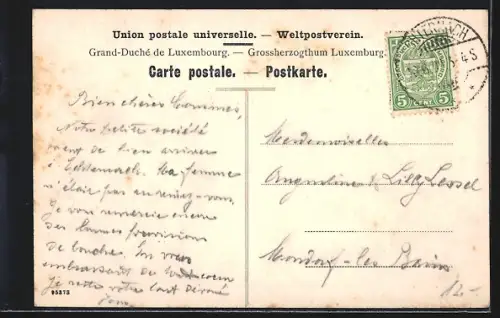 Union postale universelle. — Weltpostverein.
Grand-Duché de Luxembourg. — Grossherzogthum Luxemburg.
Carte postale. — Postkarte.
5 CENT. 5
Bien chères Cousines,
Notre petite société
vient de bien arriver
à Echternach. Ma femme
n'était pas au rendez-vous
Je vous remercie encore
des bonnes provisions
de bouche. En vous
embrassant de tout coeur
Je reste votre tout dévoué
Mesdemoiselles
Angeline & Lilly Lessel
Mondorf-les-Bains
12.-